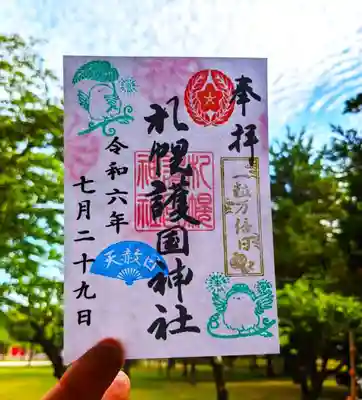 奉拝
一粒万倍日
札幌護國神社
札幌護國神社
令和六年
七月二十九日
天赦日